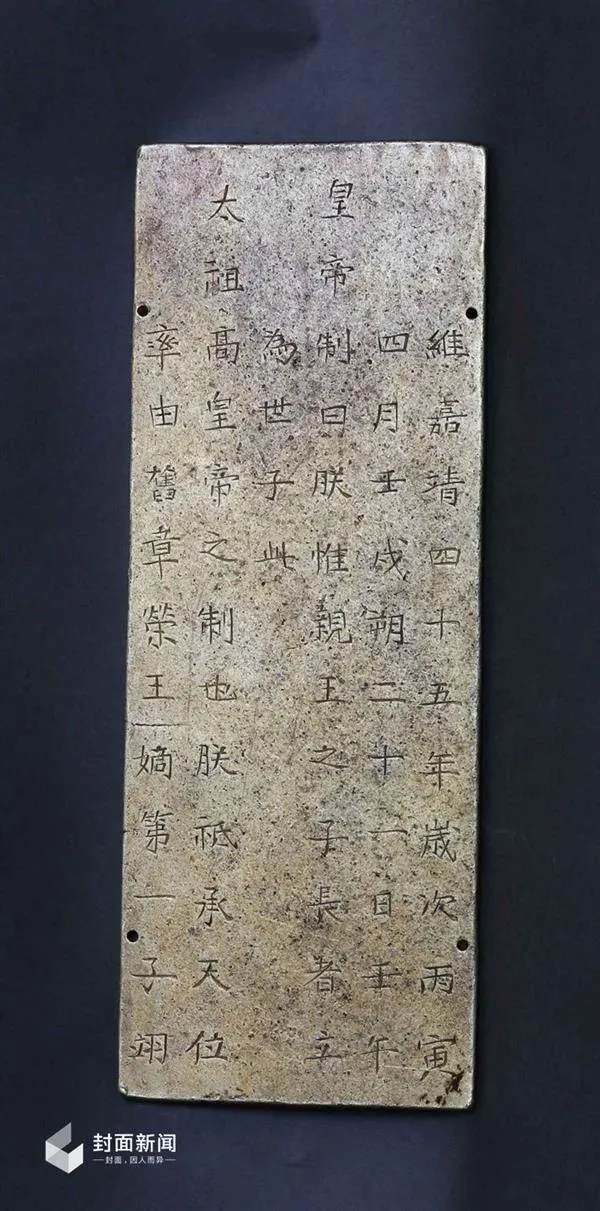 維嘉靖四十五年歲次丙寅
四月壬戌朔二十一日壬午
皇帝制曰朕惟親王之子長者立
為世子此
太祖高皇帝之制也朕祗承天位
率由舊章榮王嫡第一子翊
封面新闻
—封面，因人而异—